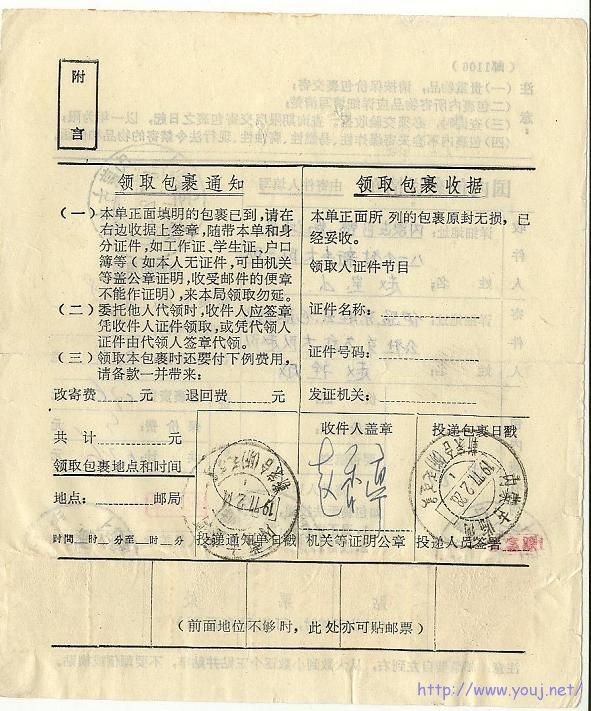 附言
领取包裹通知
(一)本单正面填明的包裹已到,请在
右边收据上签章,随带本单和身
分证件,如工作证、学生证、户口
簿等(如本人无证件,可由机关
等盖公章证明,收受邮件的便章
不能作证明),来本局领取勿延。
(二)委托他人代领时,收件人应签章
凭收件人证件领取,或凭代领人
证件由代领人签章代领。
(三)领取本包裹时还要付下例费用,
请备款一并带来:
改寄费____元 退回费____元
共 计________元
领取包裹地点和时间
地点:______邮局
时间__时__分至__时__分
领取包裹收据
本单正面所列的包裹原封无损,已
经妥收。
领取人证件节目
证件名称:
证件号码:
发证机关:
投递通知单日戳
收件人盖章
机关等证明公章
投递包裹日戳
投递人员签署
(前面地位不够时,此处亦可贴邮票)
http://www.youj.net/